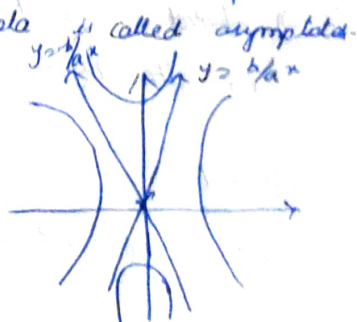 ola is called asymptotes.
y = b/a x
y = b/a x